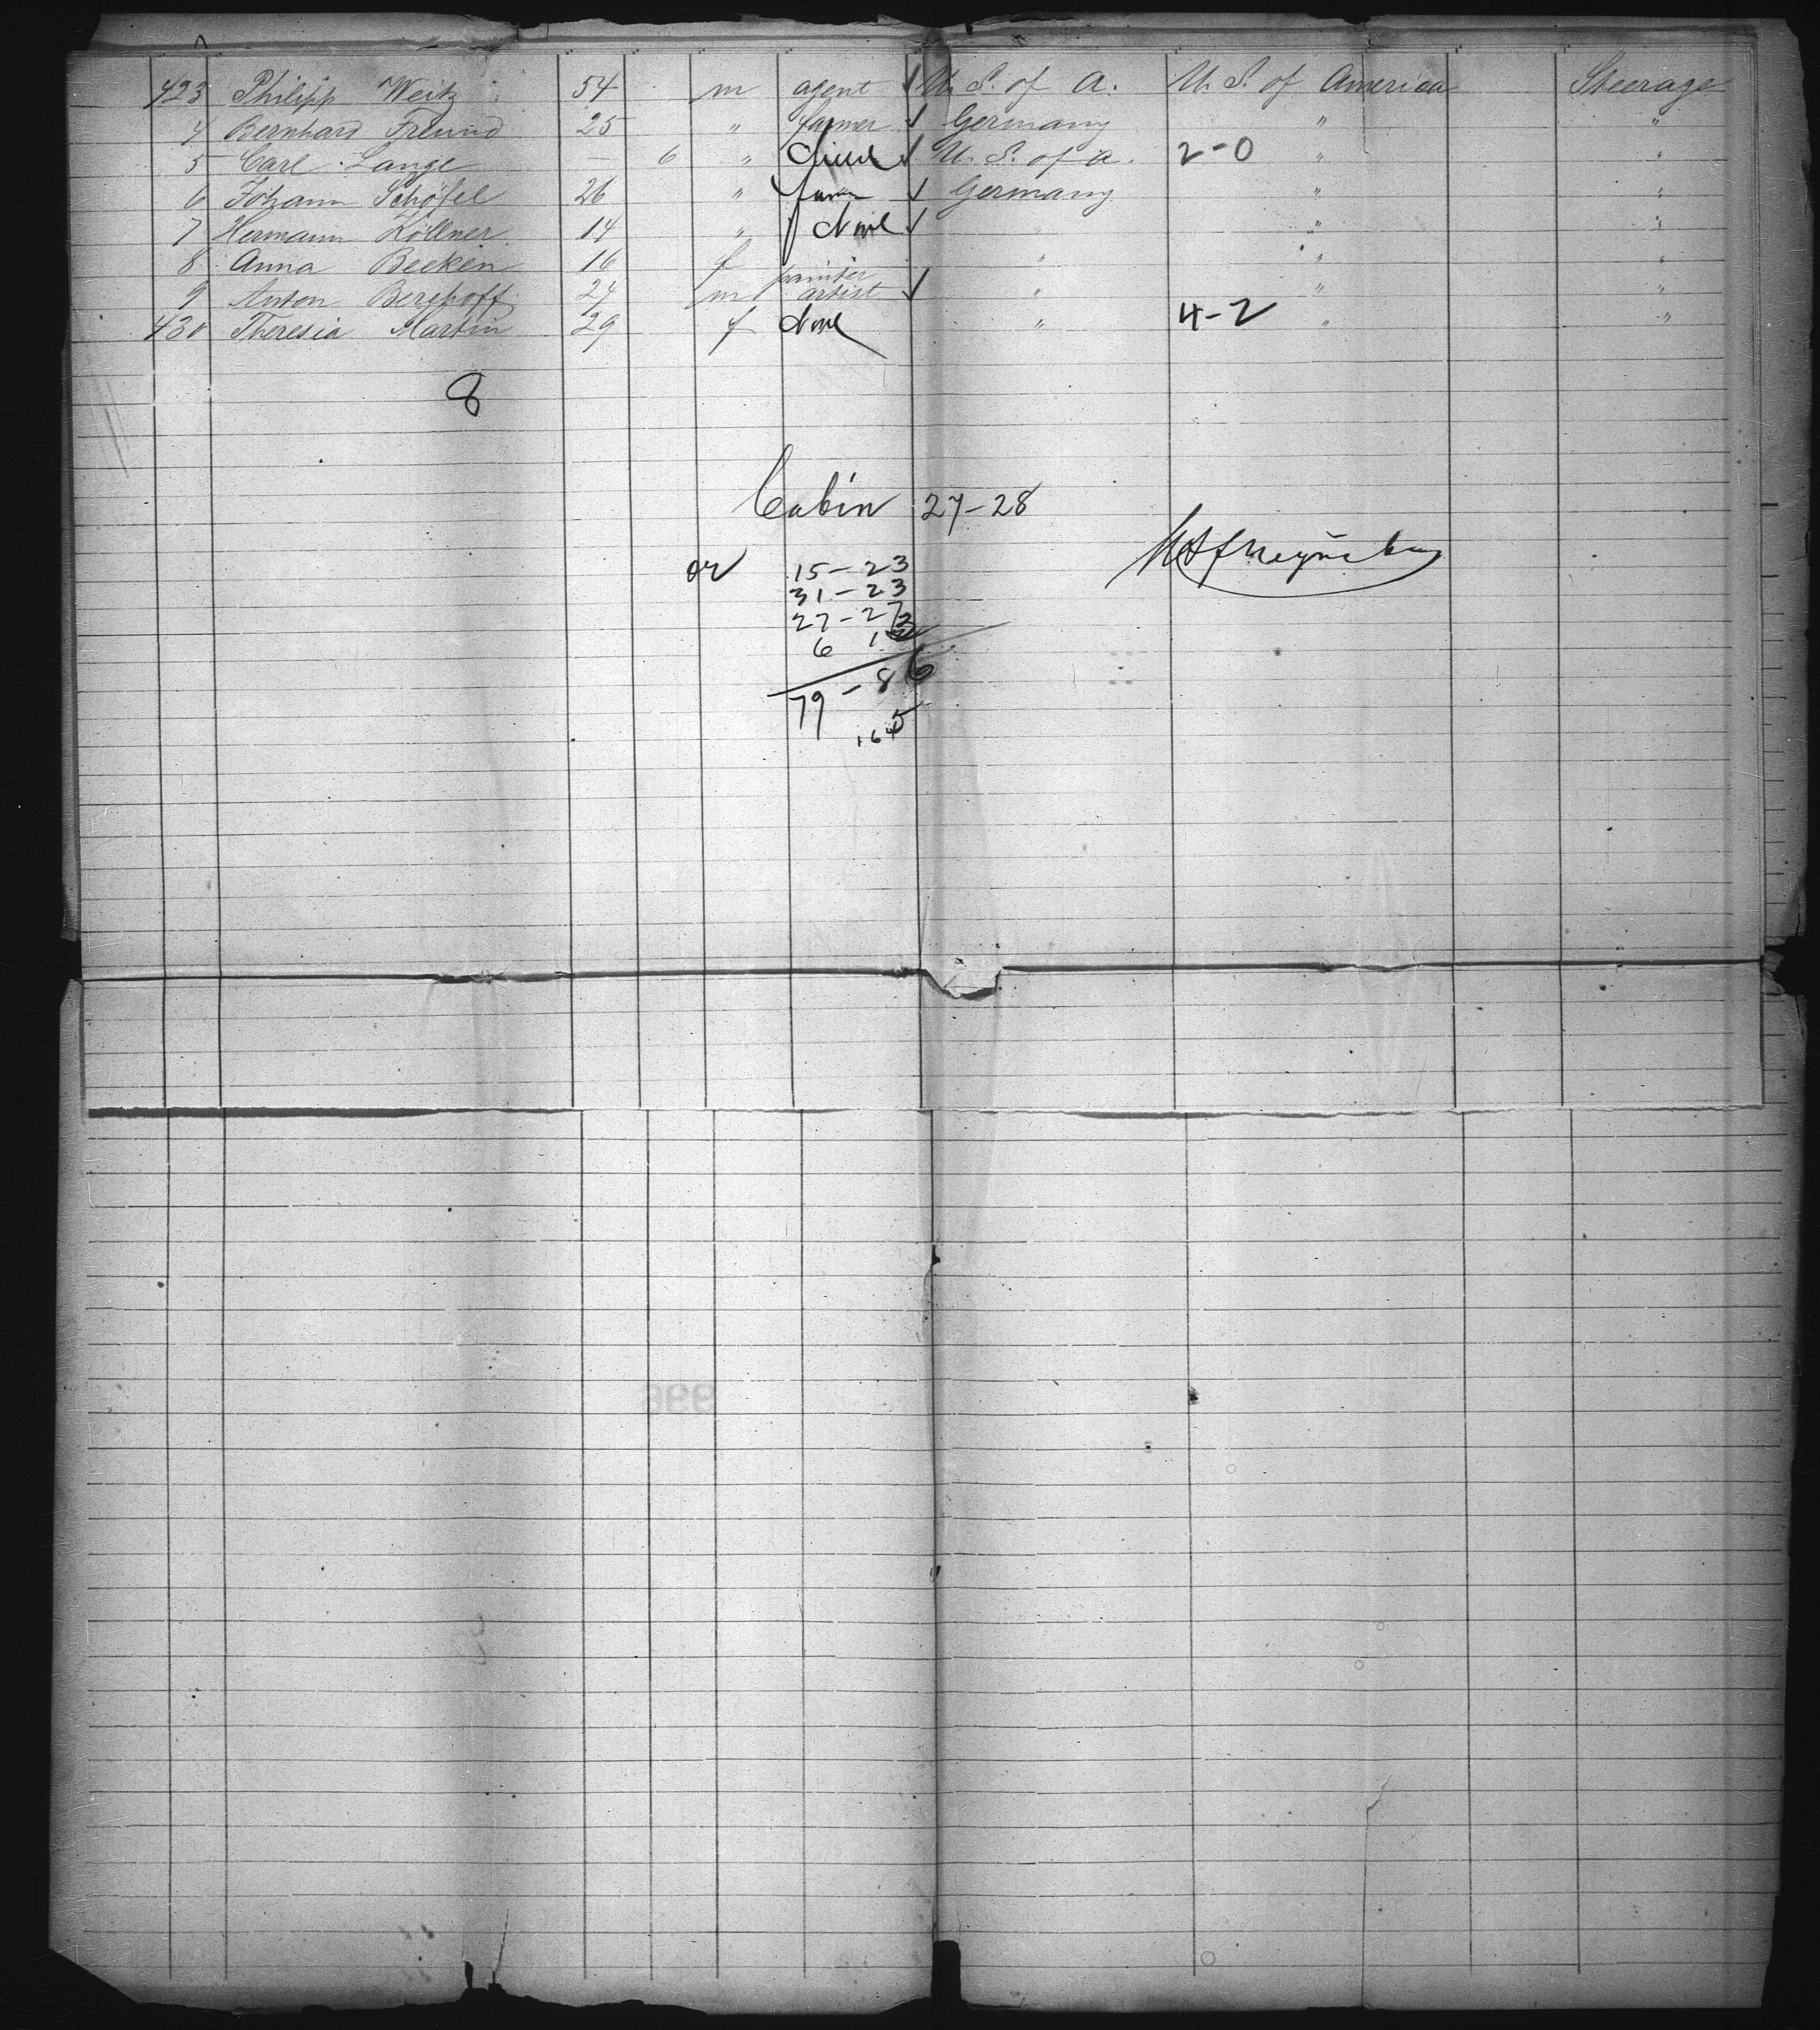 423 Philipp Weitz 54 m agent ✓ U. S. of A. U. S. of America Steerage
4 Bernhard Freund 25 " farmer ✓ Germany " "
5 Carl Lange — 6 " ✓ U. S. of A. 2-0 " "
6 Johann Schöfel 26 " ✓ Germany " "
7 Hermann Köllner 14 " None ✓ " " "
8 Anna Becken 16 f " " "
painter
9 Anton Berghoff 24 m artist ✓ " " "
430 Theresia Martin 29 f None " 4-2 " "
8
Cabin 27-28
or 15-23
31-23
27-27
6 13
79-86
165